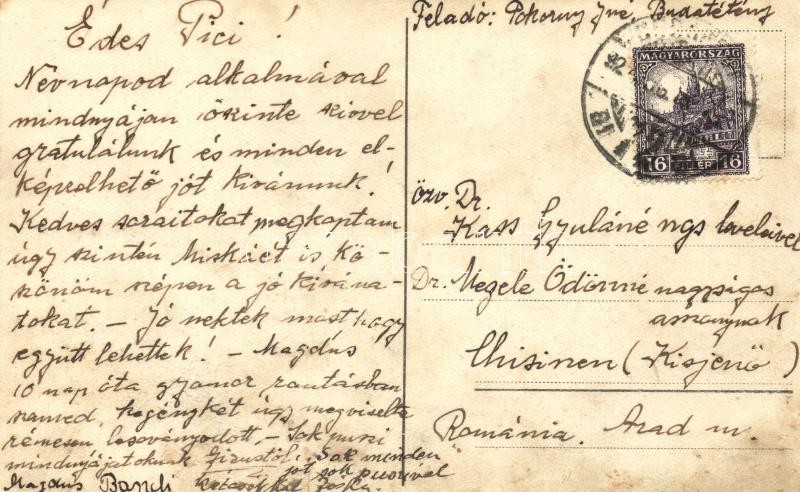 Édes Pici!
Névnapod alkalmával
mindnyájan őszinte szivvel
gratulálunk és minden el-
képzelhető jót kivánunk!
Kedves soraitokat megkaptam
úgy szintén Miskáét is Kö-
szönöm szépen a jó kívána-
tokat. – Jó nektek most hogy
együtt lehettek! – Magdus
10 nap óta gyomor
szenved, szegénykét úgy megviselte
rémesen lesoványodott. – Sok puszi
mindnyájatoknak Sok minden
jót sok puszival
Magdus Bandi
Feladó: Pokorny Budatétény
MAGYARORSZÁG
16 FILLÉR 16
özv. Dr.
Kass Gyuláné ngs leveleivel
Dr. Mezele Ödönné nagyságos
asszonynak
Chisineu (Kisjenő)
Románia. Arad m.